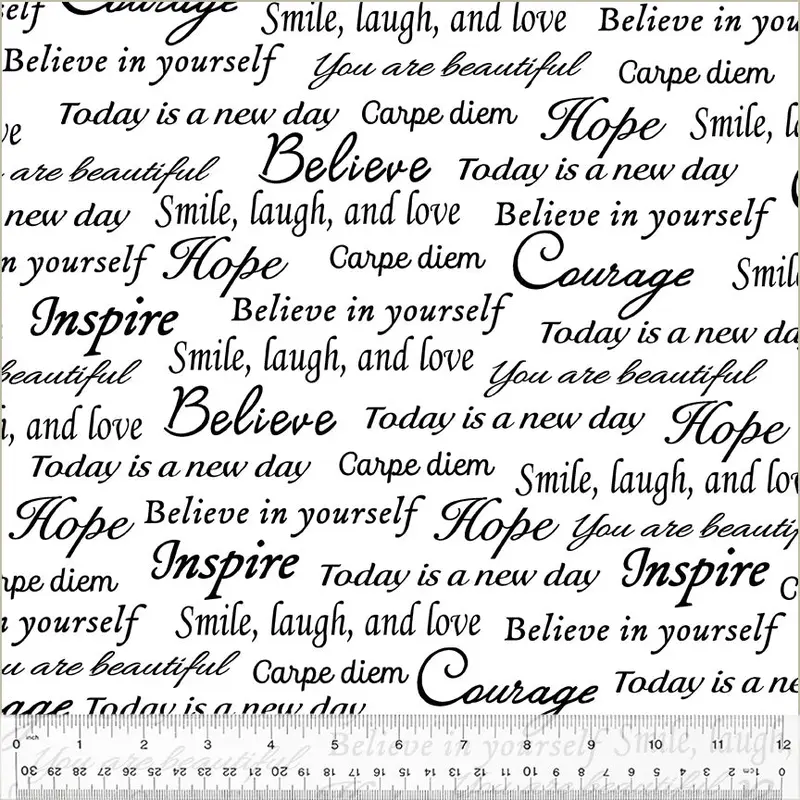 Courage Smile, laugh, and love Believe in you
Believe in yourself You are beautiful Carpe diem
Today is a new day Carpe diem Hope Smile,
are beautiful Believe Today is a new day
new day Smile, laugh, and love Believe in yourself
n yourself Hope Carpe diem Courage Smil
Inspire Believe in yourself Today is a new da
Smile, laugh, and love
beautiful You are beautiful
, and love Believe Today is a new day Hope
Today is a new day Carpe diem Smile, laugh, and lov
Hope Believe in yourself Hope You are beautif
rpe diem Inspire Today is a new day Inspire C
yourself Smile, laugh, and love Believe in yourself
u are beautiful Carpe diem Courage Today is a ne
age Today is a new day
0 inch 1 2 3 4 5 6 7 8 9 10 11 12
You are beautiful Believe in yourself Smile, laugh,
30 29 28 27 26 25 24 23 22 21 20 19 18 17 16 15 14 13 12 11 10 9 8 7 6 5 4 3 2 1cm 0